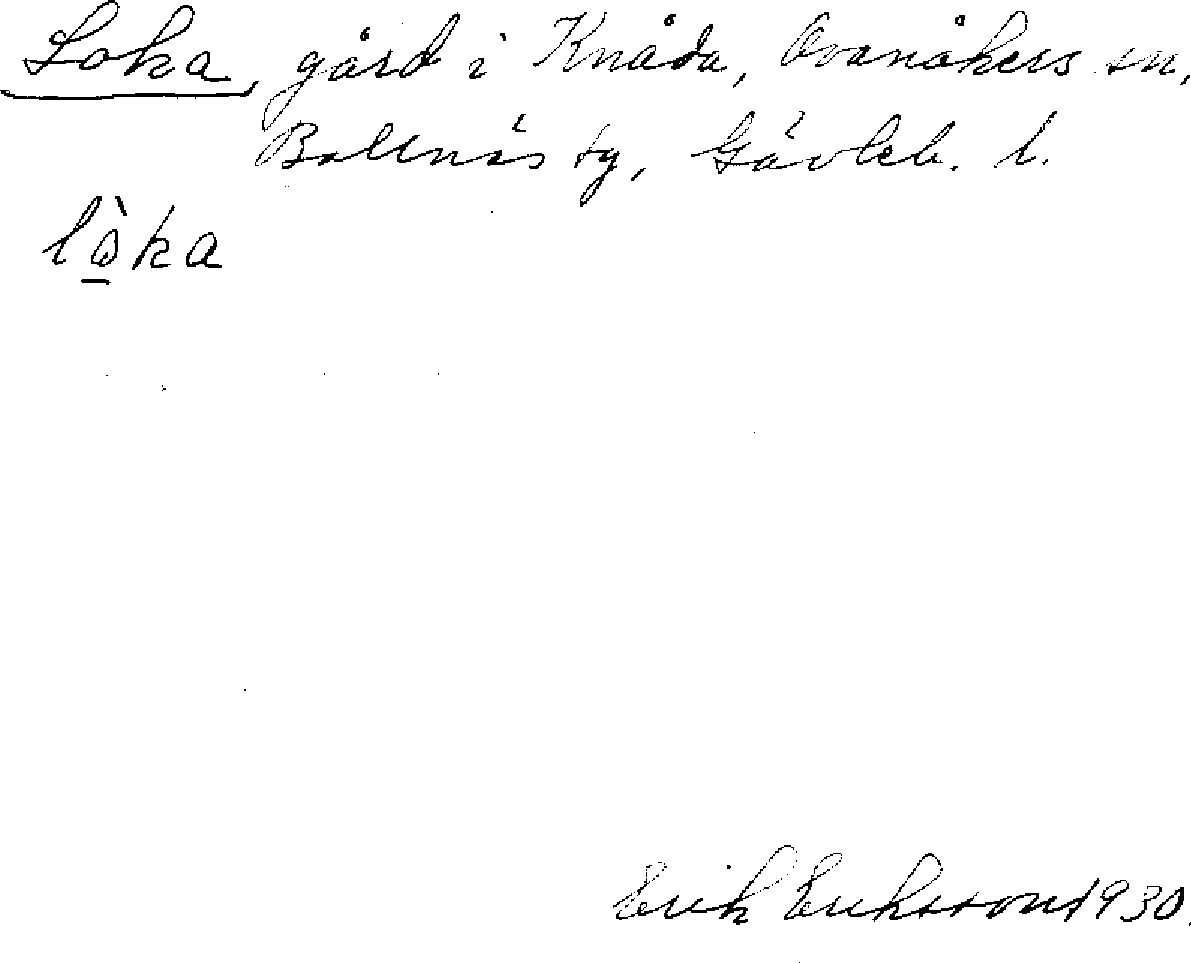 Loka, gård i Knåda, Ovanåkers sn,
Bollnäs tg, Gävleb. l.
lò̱ka
Erik Eriksson 1930.